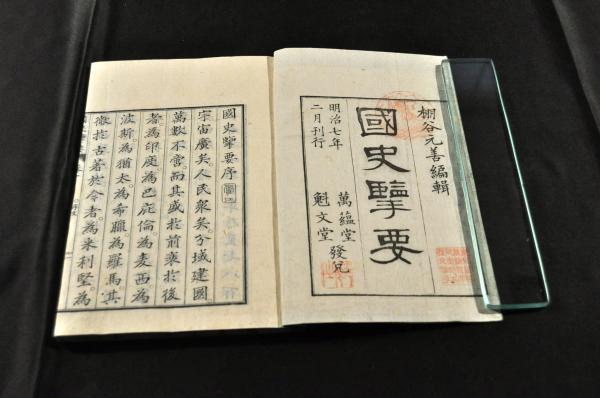 棚谷元善編輯
國史擥要
明治七年
二月刊行
萬蘊堂
魁文堂
發兌
國史擥要序
宇宙廣矣。人民衆矣。分域建國
萬數不啻而其盛於前衰於後
者為印度。為巴庇倫。為麦西為
波斯。為猶太。為希臘。為羅馬其
微於古著於今者。為米利堅。為